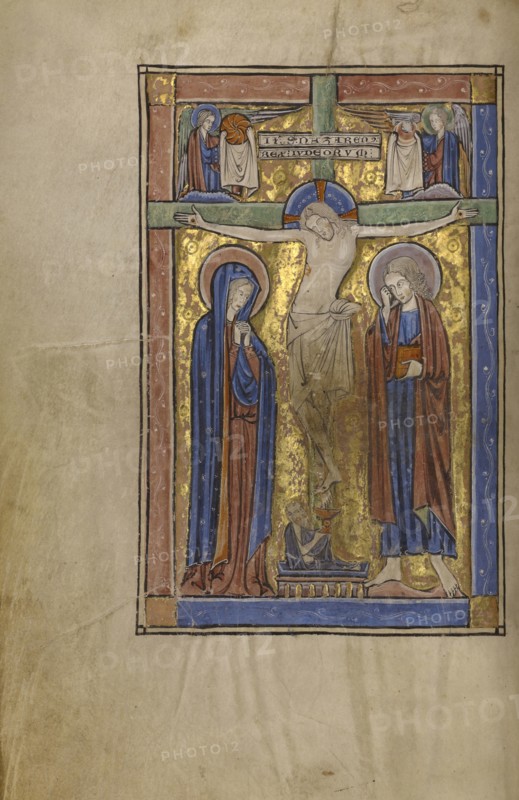 PHOTO12
PHOTO12
NAZAREN
REX IVDEORVM
PHOTO12
PHOTO12
PHOTO12
PHOTO12
PHOTO12
PHOTO12
PHOTO12
PHOTO12